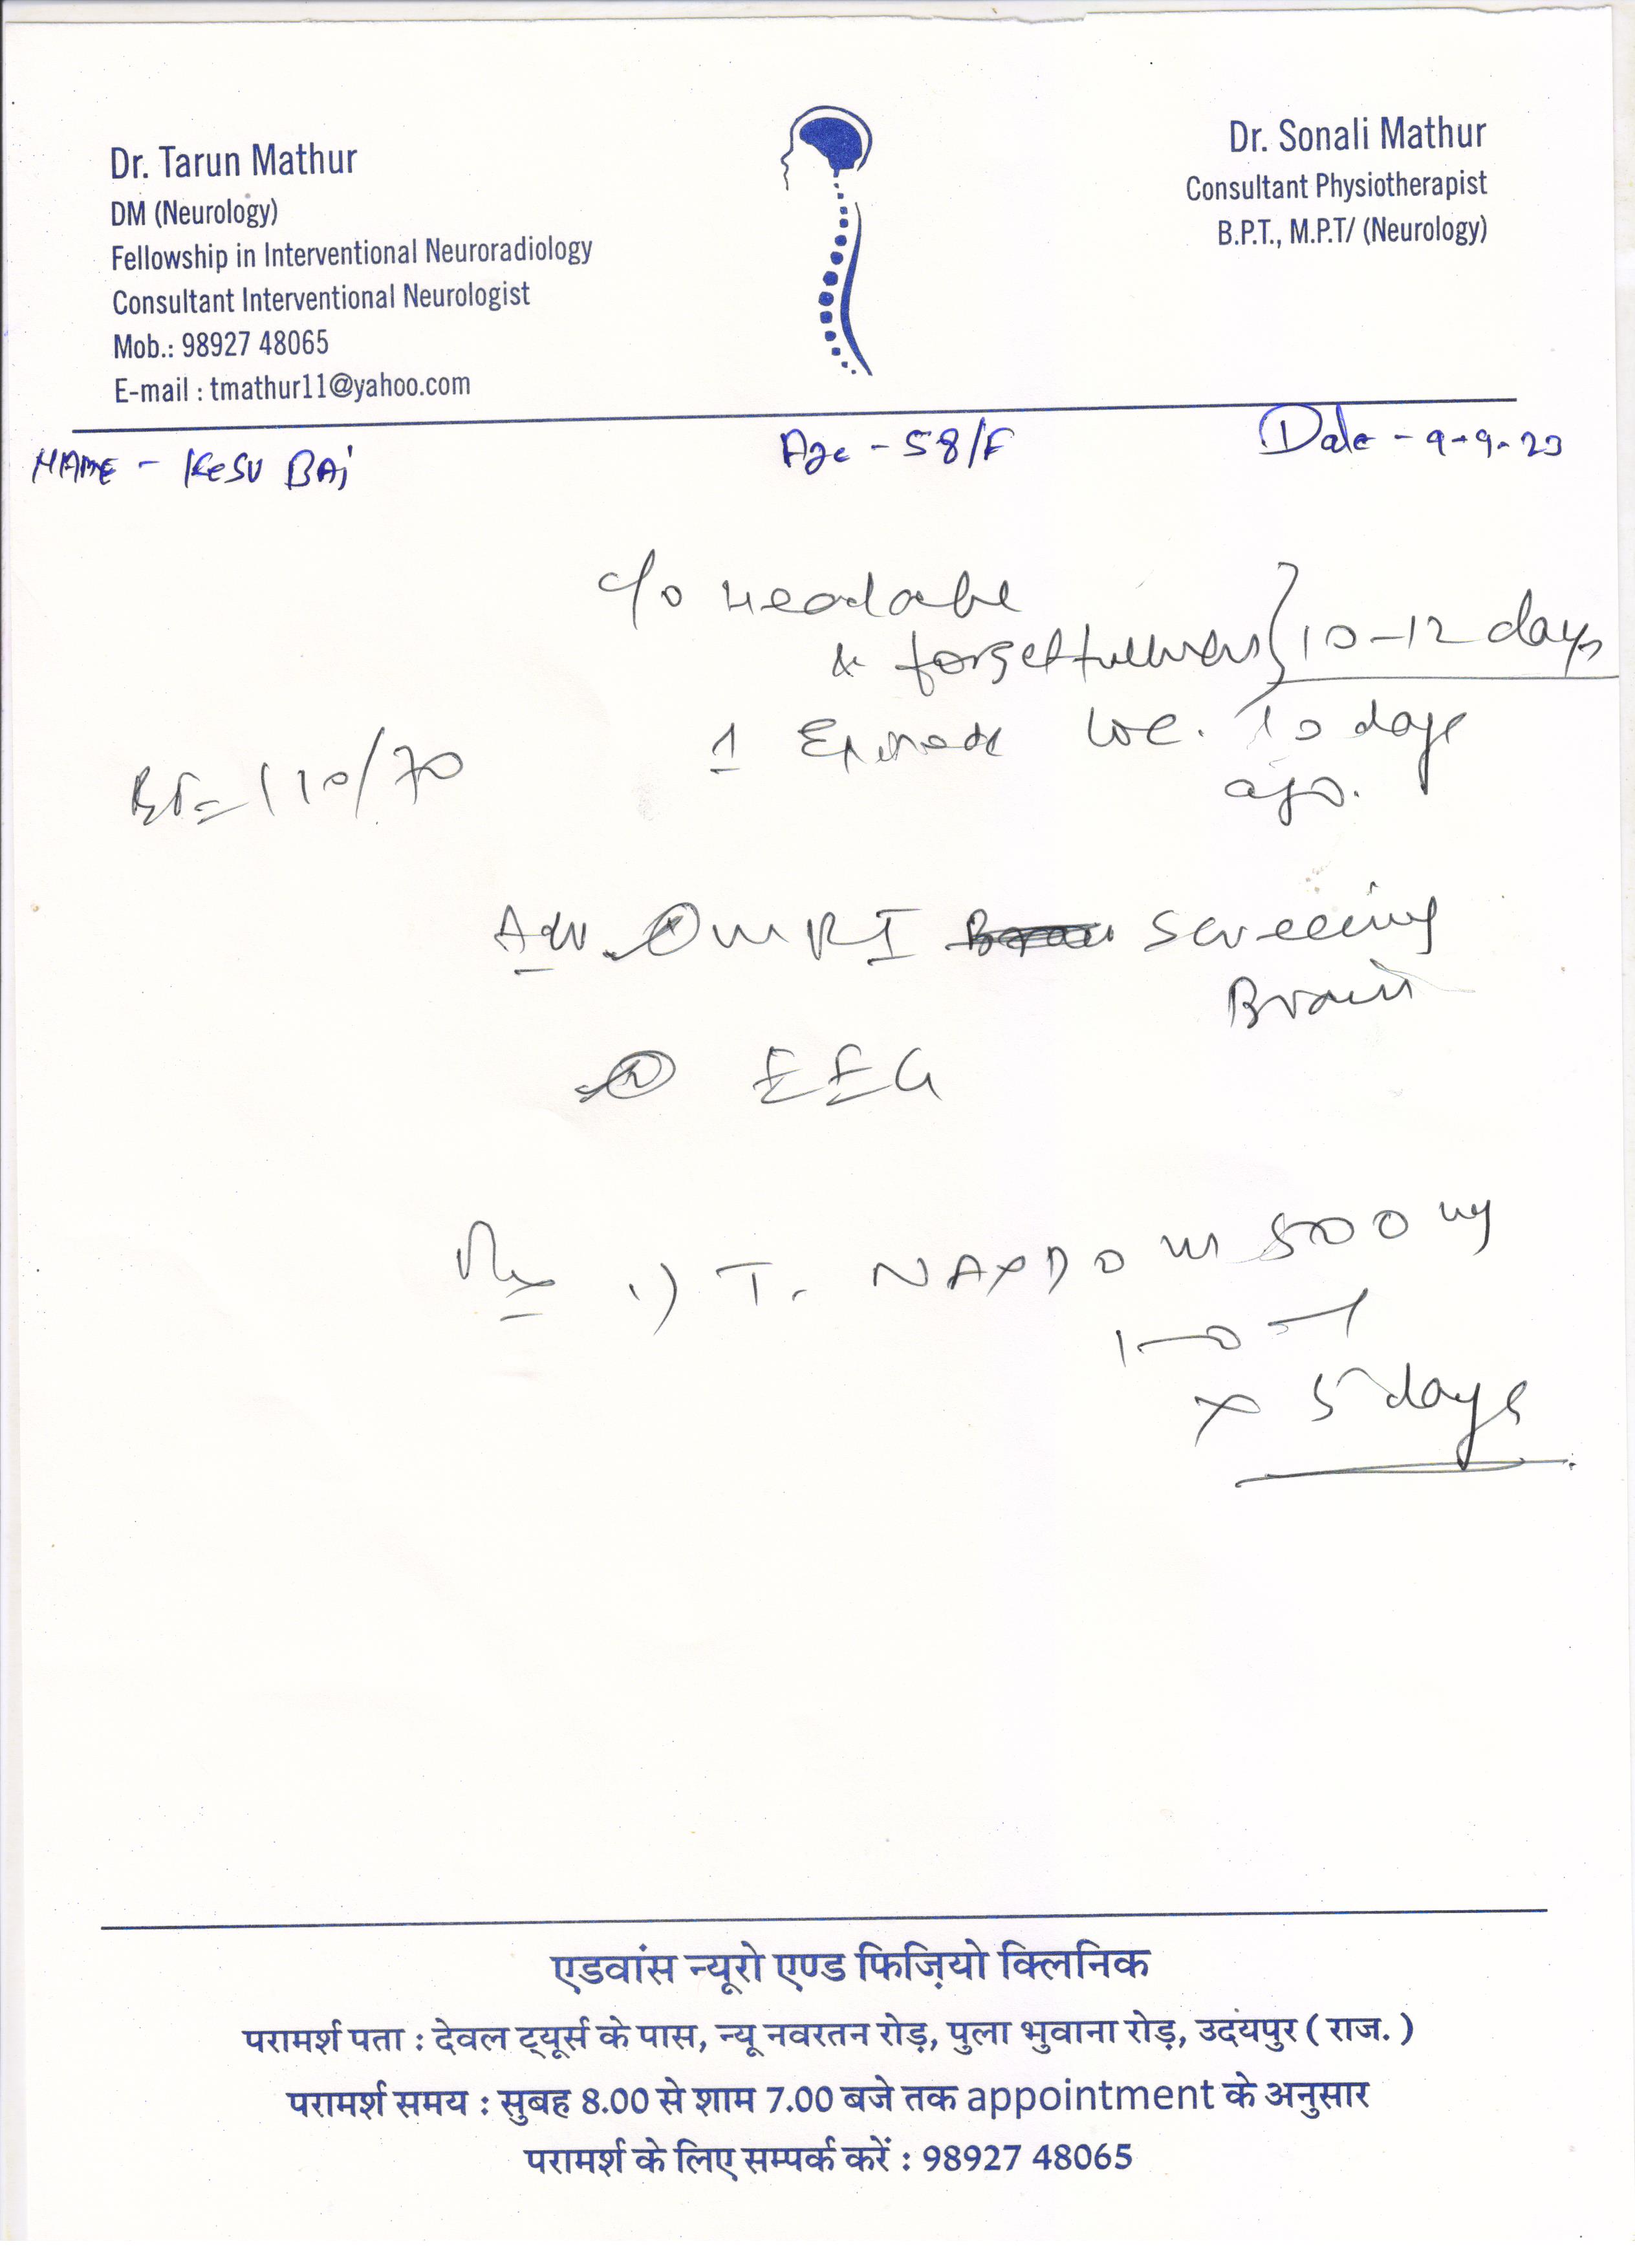 Dr. Tarun Mathur
DM (Neurology)
Fellowship in Interventional Neuroradiology
Consultant Interventional Neurologist
Mob.: 98927 48065
E-mail : tmathur11@yahoo.com
Dr. Sonali Mathur
Consultant Physiotherapist
B.P.T., M.P.T/ (Neurology)
NAME - KESU BAi Age - 58/F Date - 9-9-23
c/o Headache
& forgetfulness } 10-12 days
1 Episode LOC. 10 days
ago.
BP= 110/70
Adv. ① MRI Screening
Brain
② EEG
Rx 1) T. NAXDOM 500 mg
1-0-1
x 5 days
एडवांस न्यूरो एण्ड फिज़ियो क्लिनिक
परामर्श पता : देवल ट्यूर्स के पास, न्यू नवरतन रोड़, पुला भुवाना रोड़, उदयपुर ( राज. )
परामर्श समय : सुबह 8.00 से शाम 7.00 बजे तक appointment के अनुसार
परामर्श के लिए सम्पर्क करें : 98927 48065